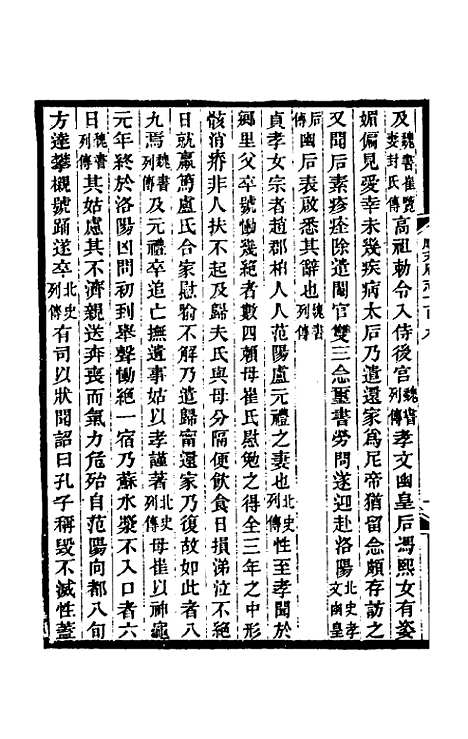 及魏書崔覽妻封氏傳高祖勅令入侍後宮魏書列傳孝文幽皇后馮熙女有姿
媚偏見愛幸未幾疾病太后乃遣還家爲尼帝猶留念頗存訪之
又聞后素疹痊除遣閹官雙三念璽書勞問遂迎赴洛陽北史孝文幽皇
后傳幽后表啟悉其辭也魏書列傳
貞孝女宗者趙郡柏人人范陽盧元禮之妻也北史列傳性至孝聞於
鄉里父卒號慟幾絕者數四賴母崔氏慰勉之得全三年之中形
骸消瘠非人扶不起及歸夫氏與母分隔便飲食日損涕泣不絕
日就羸篤盧氏合家慰喻不解乃遣歸甯還家乃復故如此者八
九焉魏書列傳及元禮卒追亡撫遺事姑以孝謹著北史列傳母崔以神龜
元年終於洛陽凶問初到舉聲慟絕一宿乃蘇水漿不入口者六
日魏書列傳其姑慮其不濟親送奔喪而氣力危殆自范陽向都八旬
方達攀櫬號踊遂卒北史列傳有司以狀聞詔曰孔子稱毀不滅性蓋